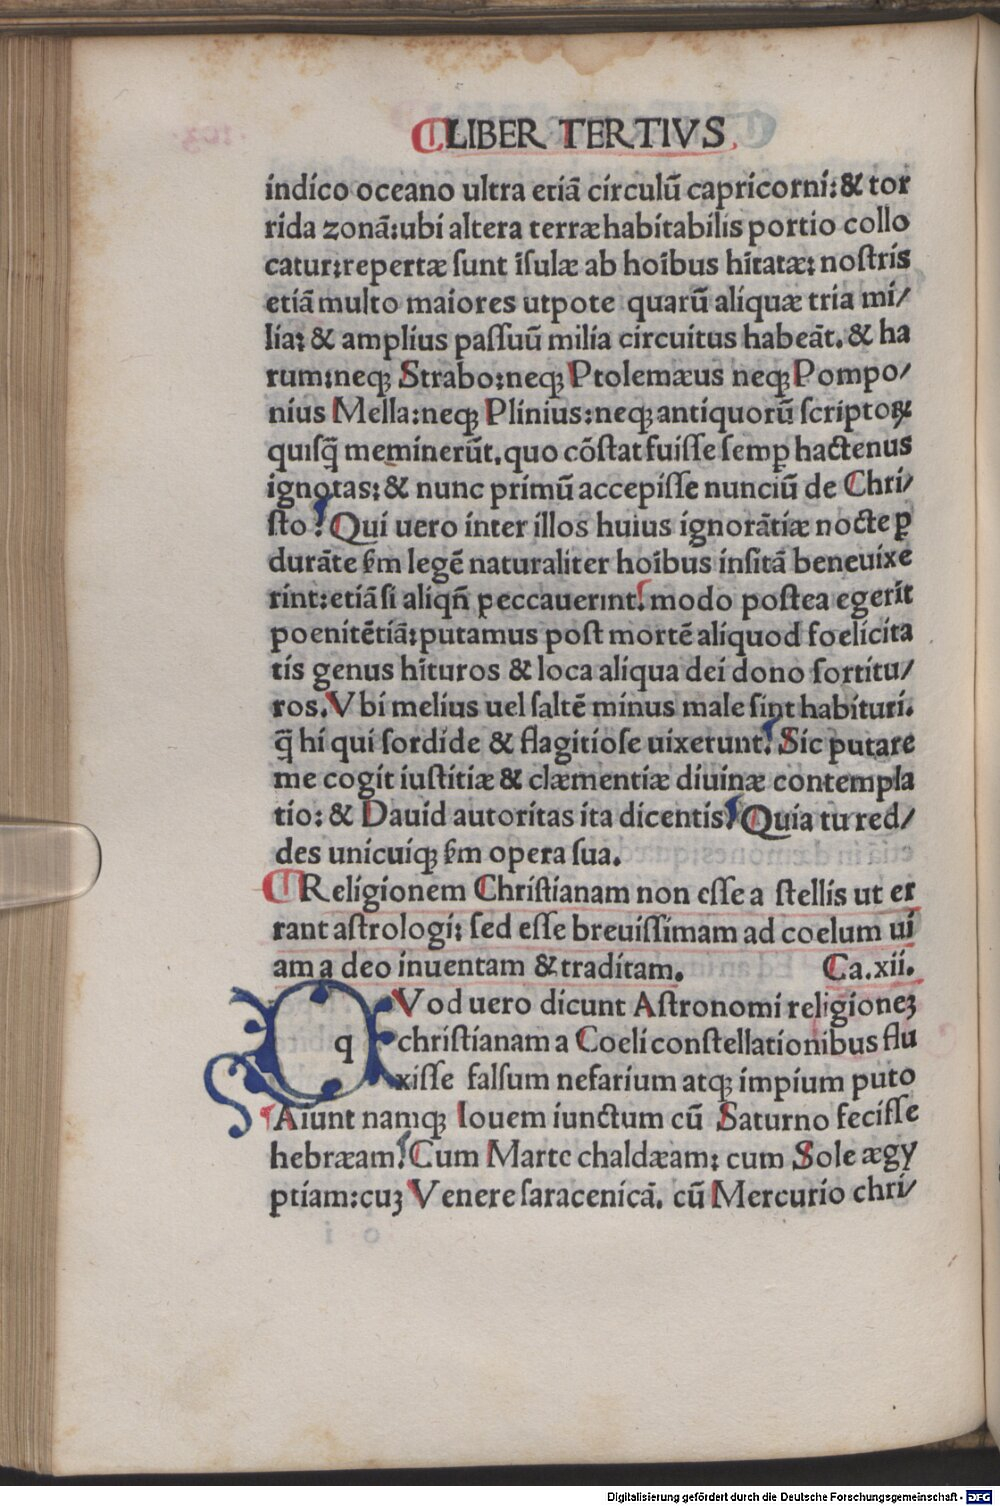 ¶LIBER TERTIVS
indico oceano ultra etiã circulũ capricorni:& tor
rida zonã:ubi altera terræ habitabilis portio collo
catur:repertæ sunt ĩsulæ ab hoĩbus hĩtatæ: nostris
etiã multo maiores utpote quarũ aliquæ tria mi/
lia: & amplius passuũ milia circuitus habeãt. & ha
rum:neqꝫ Strabo:neqꝫ Ptolemæus neqꝫ Pompo/
nius Mella:neqꝫ Plinius:neqꝫ antiquorũ scriptoꝝ
quisq̃ meminerũt.quo cõstat fuisse semꝑ hactenus
ignotas: & nunc primũ accepisse nunciũ de Chri/
sto. Qui uero inter illos huius ignorãtiæ nocte ꝑ
durãte ẜm legẽ naturaliter hoĩbus insitã bene uixe
rint:etiã si aliqñ peccauerint. modo postea egerit
poenitẽtiã:putamus post mortẽ aliquod foelicita
tis genus hĩturos & loca aliqua dei dono sortitu/
ros. Vbi melius uel saltẽ minus male sint habituri.
q̃ hi qui sordide & flagitiose uixerunt. Sic putare
me cogit iustitiæ & clæmentiæ diuinæ contempla
tio: & Dauid autoritas ita dicentis. Quia tu red/
des unicuiqꝫ ẜm opera sua.
¶Religionem Christianam non esse a stellis ut er
rant astrologi: sed esse breuissimam ad coelum ui
am a deo inuentam & traditam. Ca.xii.
qVod uero dicunt Astronomi religioneꝫ
christianam a Coeli constellationibus flu
xisse falsum nefarium atqꝫ impium puto
Aiunt namqꝫ Iouem iunctum cũ Saturno fecisse
hebræam. Cum Marte chaldæam: cum Sole ægy
ptiam:cuꝫ Venere saracenicã. cũ Mercurio chri/
Digitalisierung gefördert durch die Deutsche Forschungsgemeinschaft - DFG